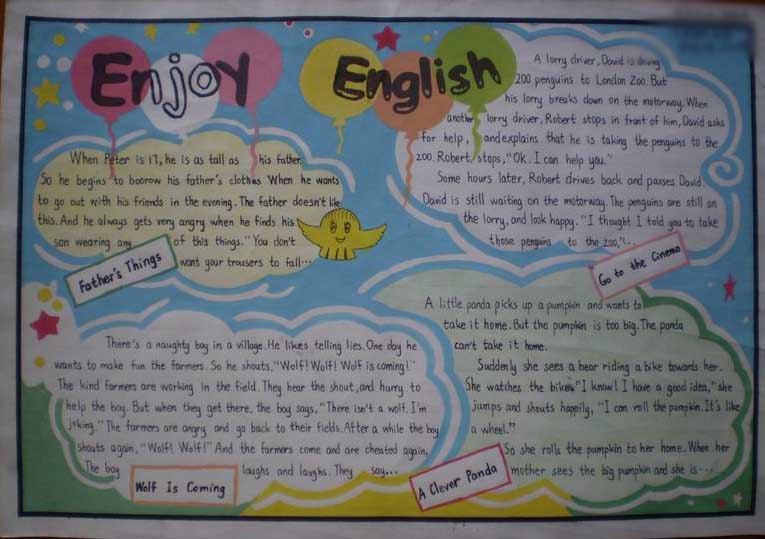 Enjoy English
When Peter is 17, he is as tall as his father.
So he begins to boorow his father's clothes When he wants
to go out with his friends in the evening. The father doesn't like
this. And he always gets very angry when he finds his
son wearing any of this things. "You don't
want your trousers to fall...
Father's Things
A lorry driver, David is driving
200 penguins to London Zoo. But
his lorry breaks down on the motorway. When
another lorry driver, Robert stops in front of him, David asks
for help, and explains that he is taking the penguins to the
zoo. Robert stops, "Ok. I can help you."
Some hours later, Robert drives back and passes David.
David is still waiting on the motorway. The penguins are still on
the lorry, and look happy. "I thought I told you to take
those penguins to the zoo,"...
Go to the Cinema
There's a naughty boy in a village. He likes telling lies. One day he
wants to make fun the farmers. So he shouts, "Wolf! Wolf! Wolf is coming!"
The kind farmers are working in the field. They hear the shout, and hurry to
help the boy. But when they get there, the boy says, "There isn't a wolf. I'm
joking." The farmers are angry and go back to their fields. After a while the boy
shouts again, "Wolf! Wolf!" And the farmers come and are cheated again,
The boy laughs and laughs. They say...
Wolf Is Coming
A little panda picks up a pumpkin and wants to
take it home. But the pumpkin is too big. The panda
can't take it home.
Suddenly she sees a bear riding a bike towards her.
She watches the bike. "I know! I have a good idea," she
jumps and shouts happily, "I can roll the pumpkin. It's like
a wheel."
So she rolls the pumpkin to her home. When her
mother sees the big pumpkin and she is...
A Clever Panda